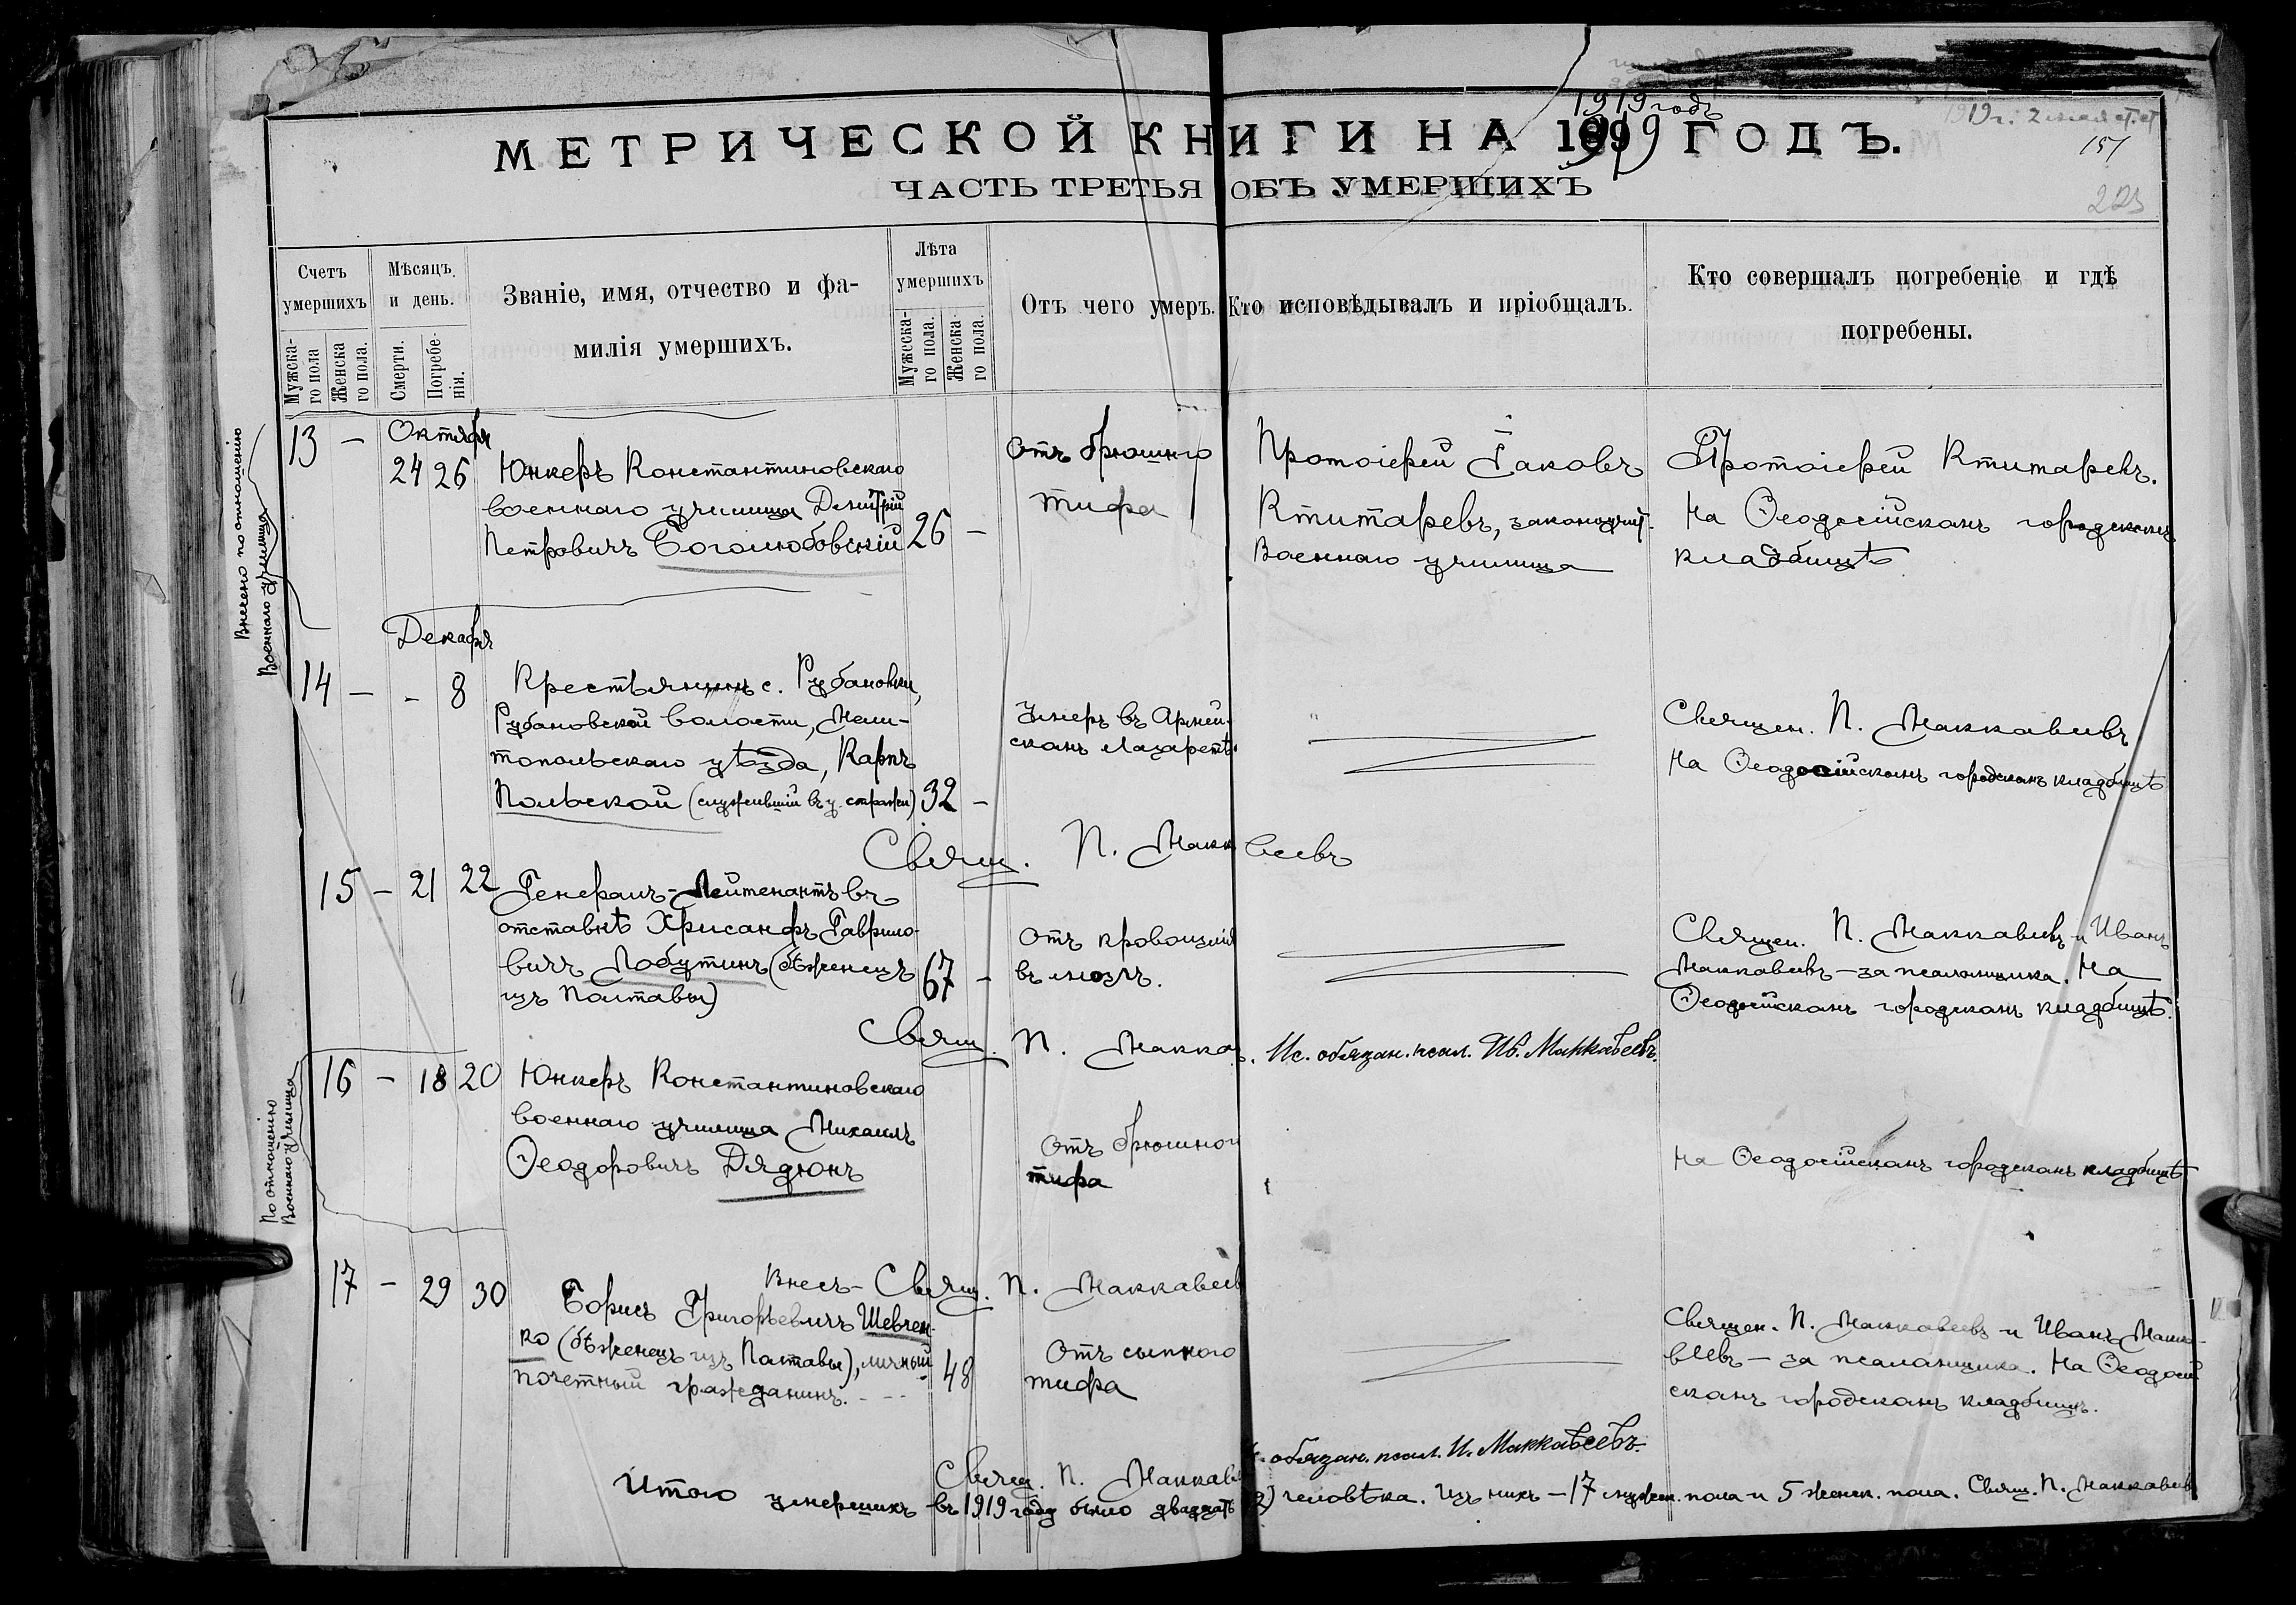 1919 годъ
МЕТРИЧЕСКОЙ КНИГИ НА 1919 ГОДЪ.
151
ЧАСТЬ ТРЕТЬЯ ОБЪ УМЕРШИХЪ
223
Счетъ умершихъ
Мужска-го пола
Женска го пола.
Мѣсяцъ и день.
Смерти.
Погребе-нія.
Званіе, имя, отчество и фа-
милія умершихъ.
Лѣта умершихъ
Мужеска-го пола.
Женска го пола.
Отъ чего умеръ.
Кто исповѣдывалъ и пріобщалъ.
Кто совершалъ погребеніе и гдѣ
погребены.
Внесено по отношенію
Военнаго училища
13 – Октября
24 26 Юнкеръ Константиновскаго
военнаго училища Димитрій
Петровичъ Боголюбовскій 26 –
Отъ брюшного
тифа
Протоіерей Іаковъ
Ктитаревъ, законоучит.
Военнаго училища
Протоіерей Ктитаревъ.
На Ѳеодосійскомъ городскомъ
кладбищѣ
Декабря
14 – - 8 Крестьянинъ с. Рубановки,
Рубановской волости, Мели-
топольскаго уѣзда, Карпъ
Польской (служившій въ у. стражи) 32 –
Умеръ въ Армей-
скомъ лазаретѣ.
Священ. П. Маккавеевъ
На Ѳеодосійскомъ городскомъ кладбищѣ
Свящ. П. Маккавеевъ
15 – 21 22 Генералъ-Лейтенантъ въ
отставкѣ Хрисанфъ Гаврило-
вичъ Лобутинъ (бѣженецъ
изъ Полтавы) 67 –
Отъ кровоизлія
въ мозгъ.
Священ. П. Маккавеевъ и Иванъ
Маккавеевъ – за псаломщика. На
Ѳеодосійскомъ городскомъ кладбищѣ.
Свящ. П. Макка. Ис. обязан. псал. Ив. Маккавеевъ.
По отношенію
Военнаго училища
16 – 18 20 Юнкеръ Константиновскаго
военнаго училища Михаилъ
Ѳеодоровичъ Дядюнъ
Отъ брюшног
тифа
На Ѳеодосійскомъ городскомъ кладбищѣ
Внесъ – Свящ. П. Маккавеев
17 – 29 30 Борисъ Григорьевичъ Шевчен-
ко (бѣженецъ изъ Полтавы), личный
почетный гражданинъ. 48
Отъ сыпного
тифа
Священ. П. Маккавеевъ и Иванъ Макка-
веевъ – за псаломщика. На Ѳеодосій
скомъ городскомъ кладбищѣ.
Свящ. П. Маккаве. обязан. псал. И. Маккавеевъ.
Итого умершихъ въ 1919 году было двадцать 2) человѣка. Изъ нихъ – 17 мужск. пола и 5 женск. пола. Свящ. П. Маккавеевъ